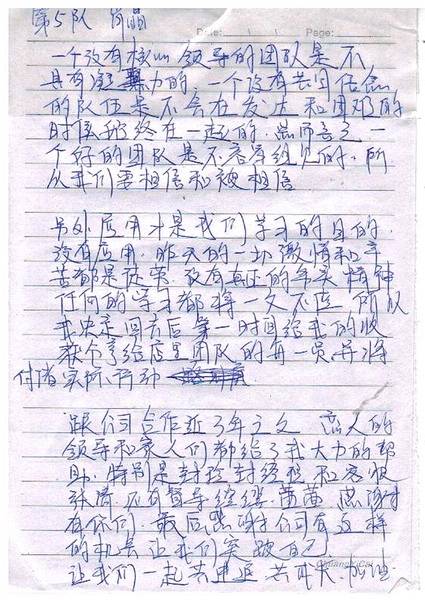 第5队 肖晶
Date: Page:
一个没有核心领导的团队是不
具有凝聚力的,一个没有共同信念
的队伍是不会在发大和困邓的
时候始终在一起的,总而言之一
个好的团队是不容易组见的,所
以我们要相信和被相信
另外应用才是我们学习的目的,
没有应用,昨天的一切激情和辛
苦都是 没有真正的务实精神
任何的学习都将一文不值 所以
我决定回去后第一时间给我的收
获分享给店里团队的每一员,并将
付诸实际行动
跟公司合作近了3年之久 商人的
领导和家人们都给了我大力的帮
助,特别是 封经理和
有你们,最后感谢公司有这样
的机会让我们突破自己
让我们一起共 共成长 加油